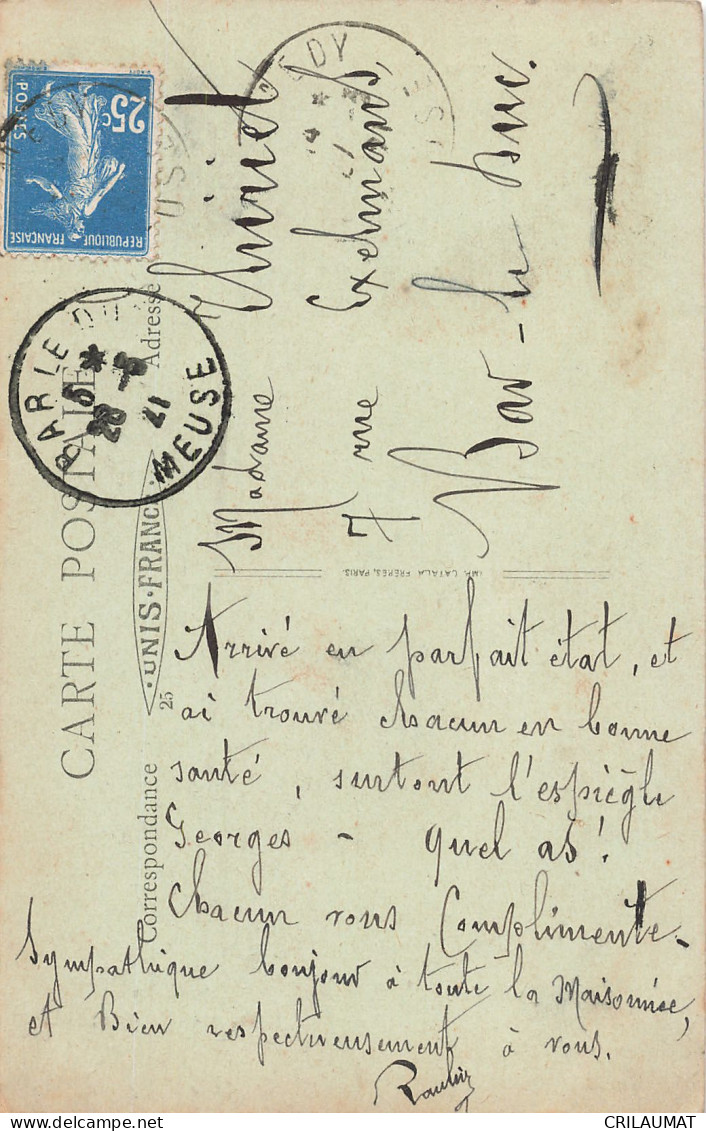 CARTE POSTALE
Correspondance
Adresse
25
·UNIS·FRANCE·
IMP. CATALA FRÈRES, PARIS
25c
POSTES
REPUBLIQUE FRANÇAISE
BAR LE DUC
MEUSE
21
Madame Thiriet
7 rue Exelmans,
Bar-le-Duc.
Arrivé en parfait état, et
ai trouvé chacun en bonne
santé, surtout l'espiègle
Georges - quel as!
Chacun vous Complimente.
Sympathique bonjour à toute la Maisonnée,
et Bien respectueusement à vous.
CRILAUMAT